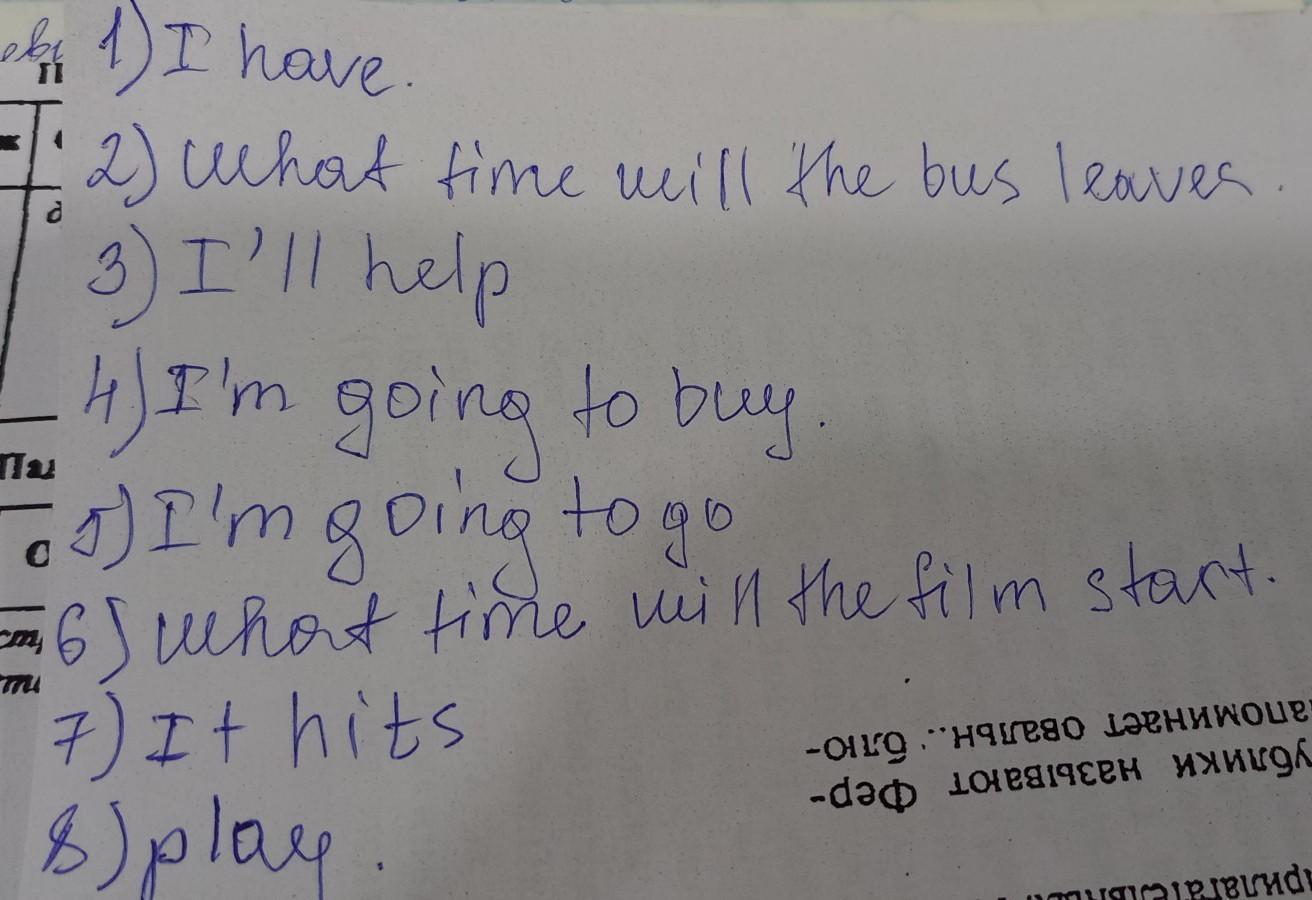 1) I have.
2) What time will the bus leaves.
3) I'll help
4) I'm going to buy.
5) I'm going to go
6) What time will the film start.
7) It hits
8) play.
апоминает овальн.. блю-
ублики называют Фер-